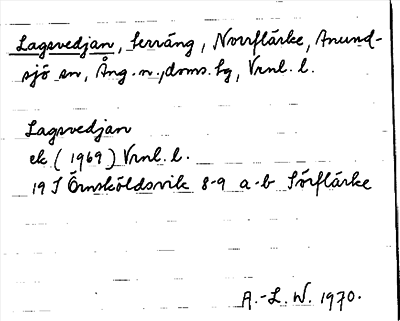 Lagsvedjan, terräng, Norrflärke, Anund-
sjö sn, Ång. n., doms. bg, Vrnl. l.
Lagsvedjan
ek (1969) Vrnl. l.
19 I Örnsköldsvik 8-9 a-b Sörflärke
A.-L. W. 1970.